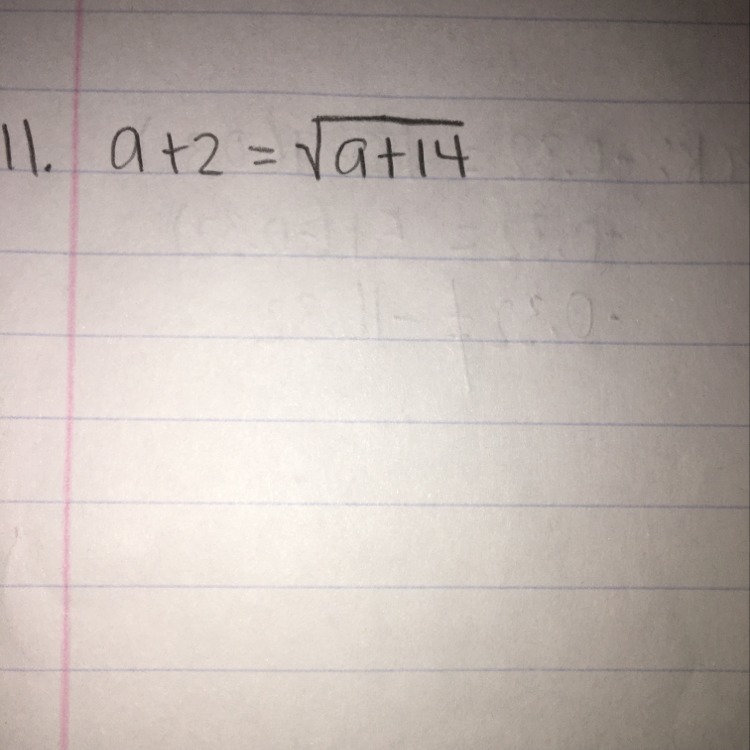 11. a+2 = √a+14